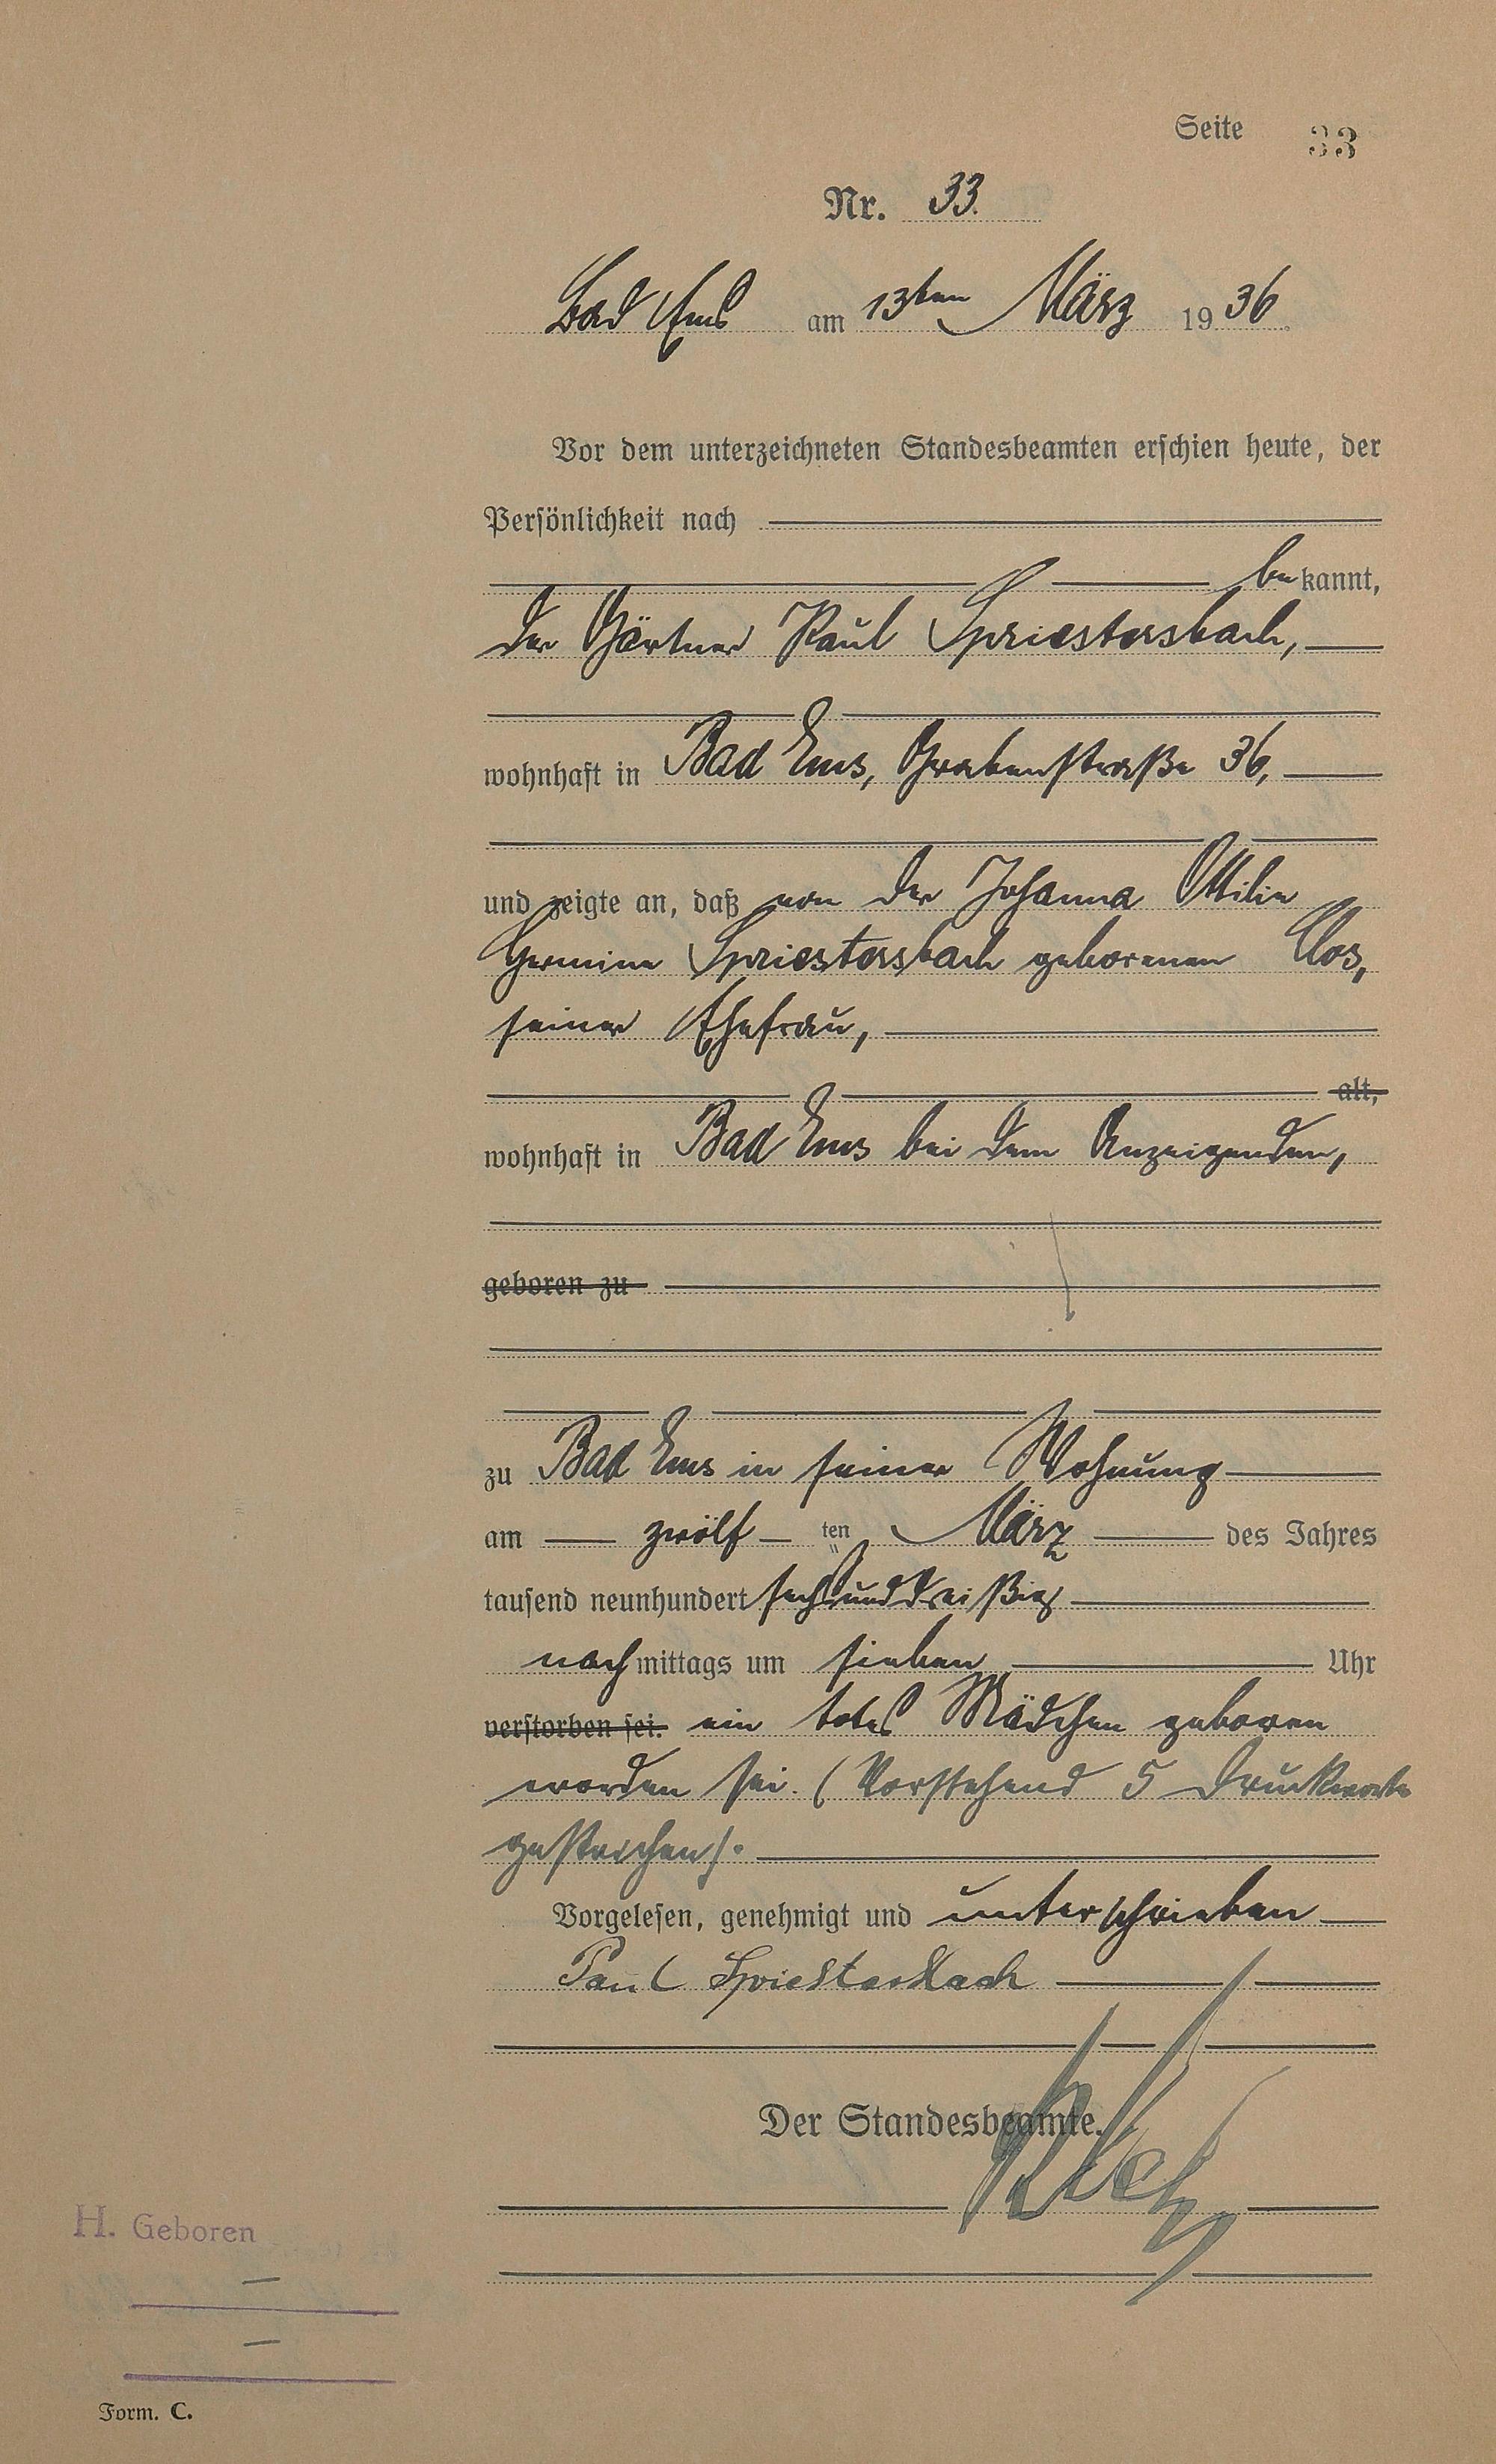 Seite 33
Nr. 33.
Bad Ems am 13ten März 1936
Vor dem unterzeichneten Standesbeamten erschien heute, der
Persönlichkeit nach
bekannt,
der Gärtner Paul Spriestersbach,
wohnhaft in Bad Ems, Grabenstraße 36,
und zeigte an, daß von der Johanna Ottilie
Hermine Spriestersbach geborenen Clos,
seiner Ehefrau,
alt,
wohnhaft in Bad Ems bei dem Anzeigenden,
geboren zu
zu Bad Ems in seiner Wohnung
am zwölften März des Jahres
tausend neunhundert sechsunddreißig
nachmittags um sieben Uhr
verstorben sei. ein totes Mädchen geboren
worden sei. (Vorstehend 5 Druckworte
gestrichen).
Vorgelesen, genehmigt und unterschrieben
Paul Spriestersbach
Der Standesbeamte.
H. Geboren
Form. C.